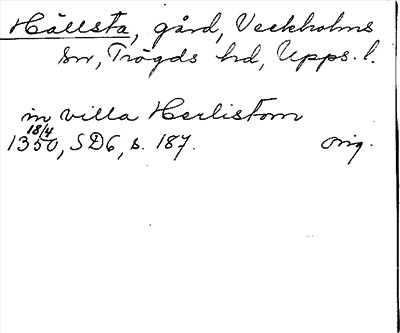 Hällsta, gård, Veckholms
sn, Trögds hd, Upps. l.
in villa Herlistom
18/4
1350, SD6, s. 187. orig.